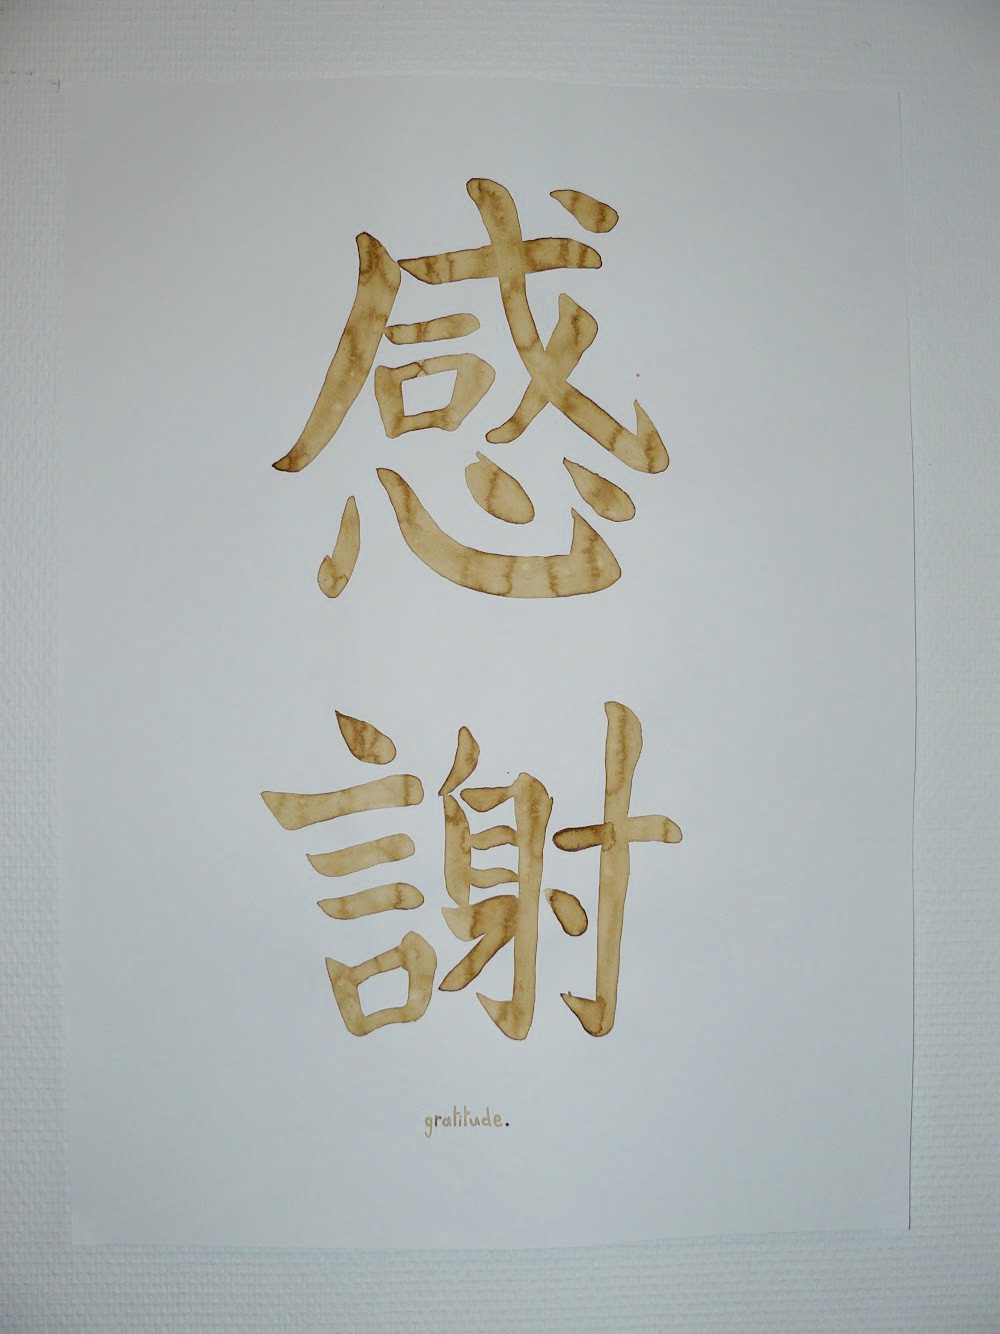 感
謝
gratitude.